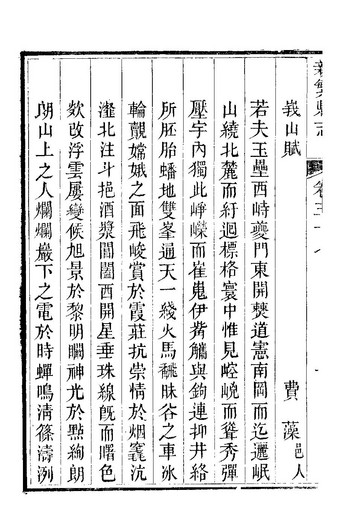 峩山賦
費藻邑人
若夫玉壘西峙夔門東開僰道憲南岡而迄邐岷
山繞北麓而紆迴標格寰中惟見崆峣而聳秀彈
壓宇內獨此崢嶸而崔嵬伊觜觿與鉤連抑井絡
所胚胎蟠地雙峯通天一綫火馬飜昧谷之車冰
輪覿嫦娥之面飛峻賞於霞莊抗崇情於烟竁沆
瀣北注斗挹酒漿閶闔西開星垂珠線旣而曙色
欻改浮雲屢變候旭景於黎明瞷神光於㸃絢朗
朗山上之人爛爛巖下之電於時蟬鳴淸篠濤洌